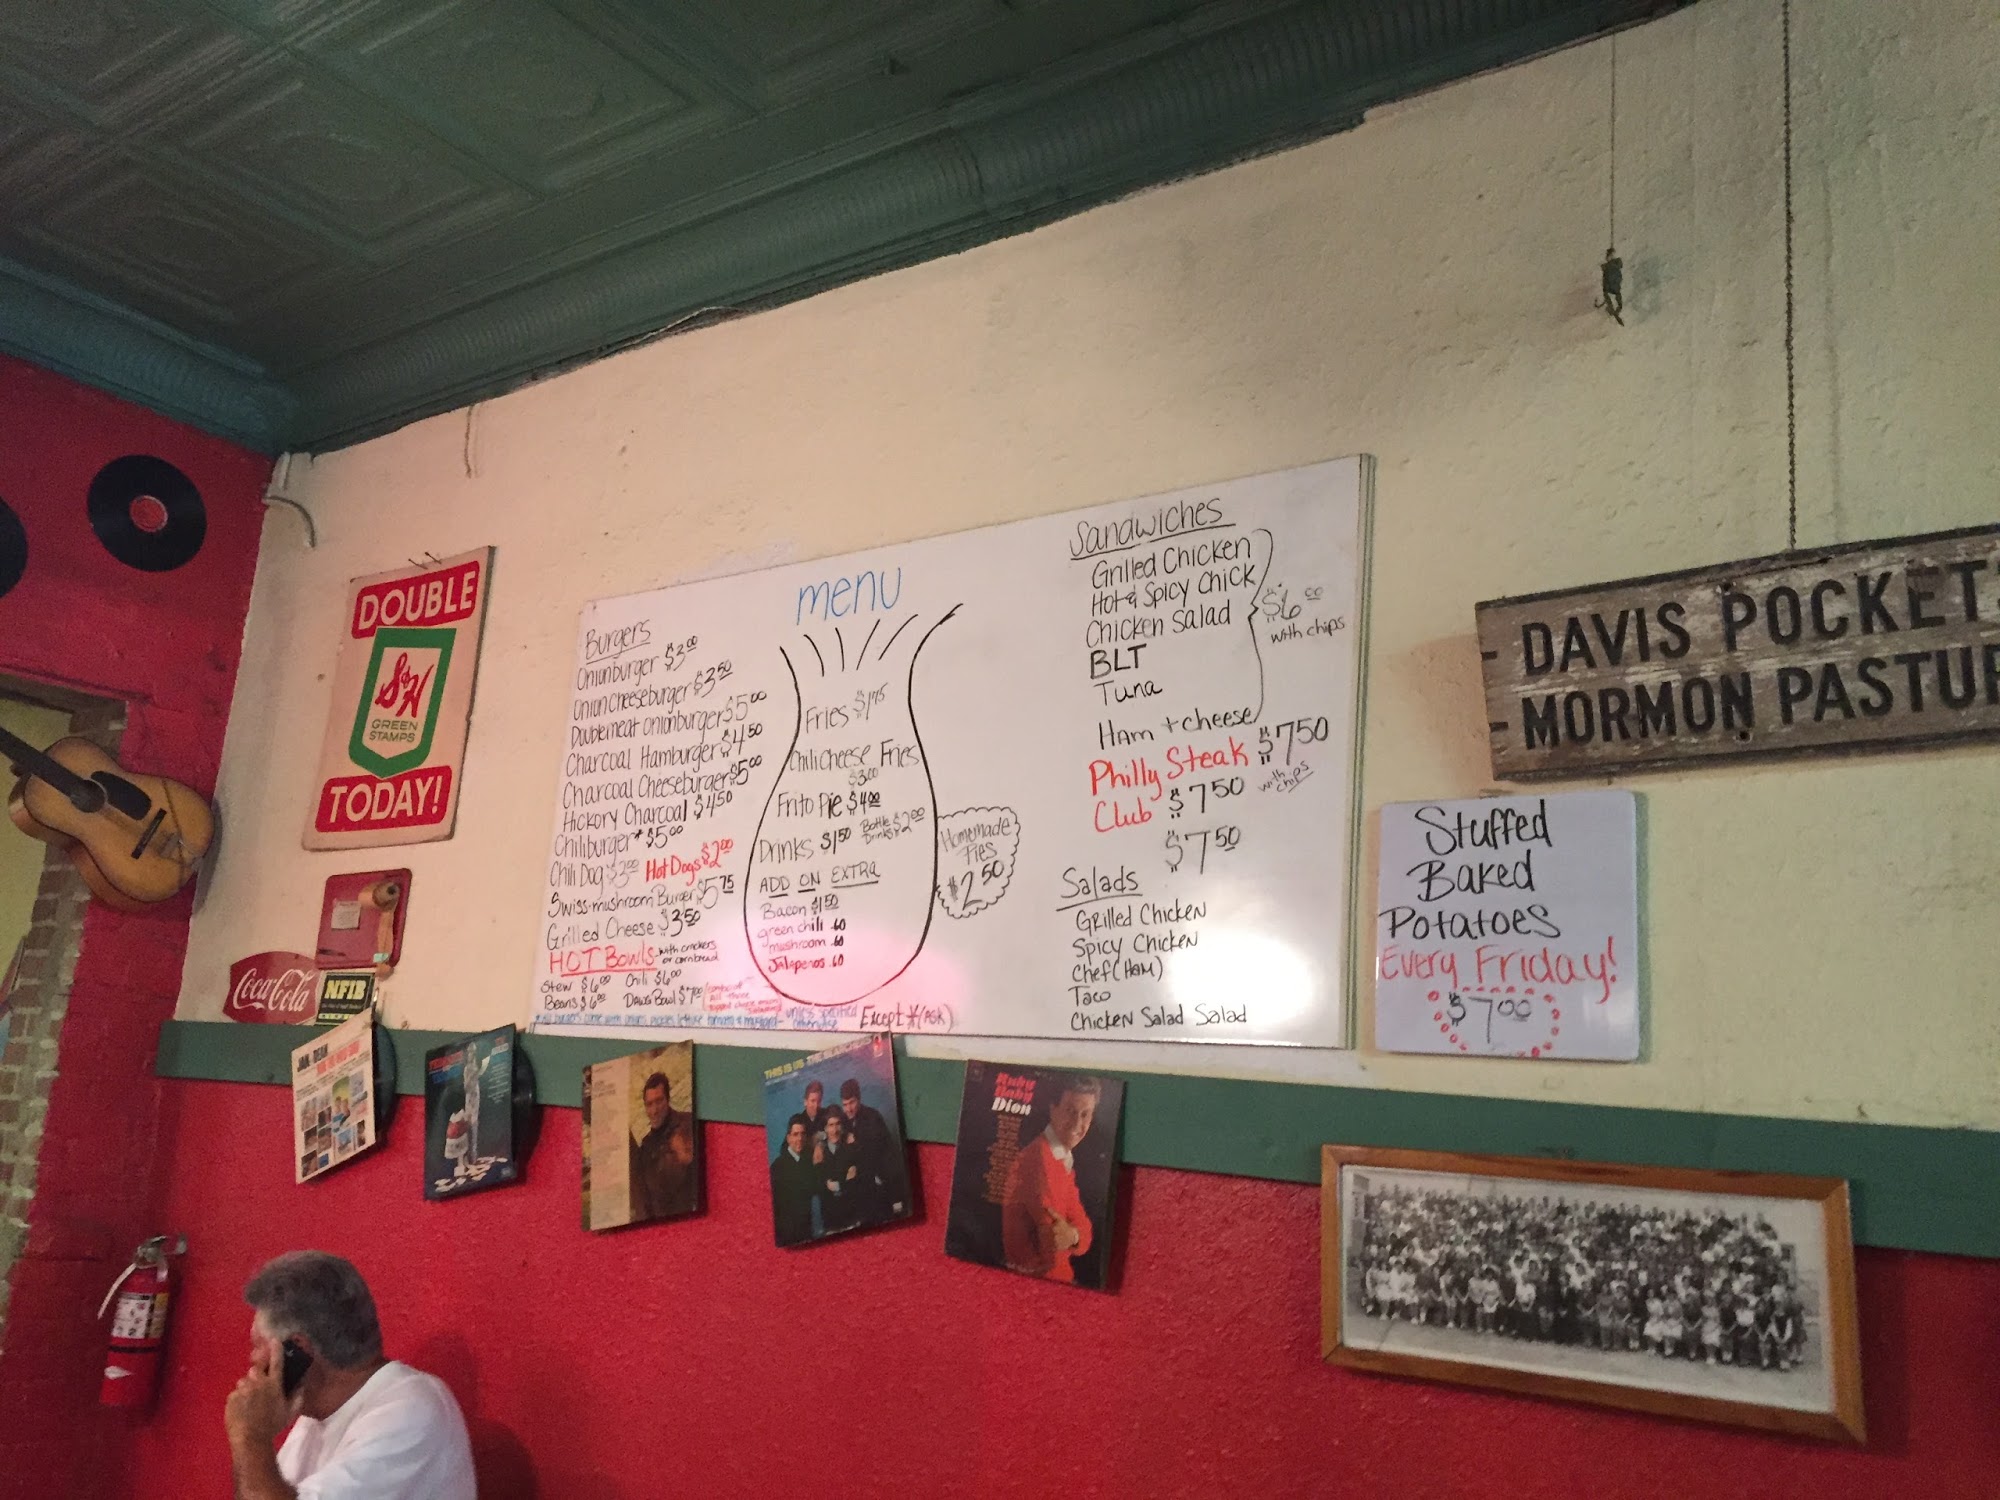 DOUBLE
S&H
GREEN
STAMPS
TODAY!
Coca-Cola
NFIB
menu
Burgers
Onionburger $3.00
Onioncheeseburger $3.50
Doublemeat onionburger $5.00
Charcoal Hamburger $4.50
Charcoal Cheeseburger $5.00
Hickory Charcoal $4.50
Chiliburger* $5.00
Chili Dog $3.00 Hot Dogs $2.00
Swiss-mushroom Burger $5.75
Grilled Cheese $3.50
HOT BOWLS -with crackers
or cornbread
Stew $6.00 Chili $6.00
Beans $6.00 Davis Bowl $7.00
unless specified
otherwise Except *(ASK)
Fries $1.75
Chili Cheese Fries
$3.00
Frito Pie $4.00
Drinks $1.50 Bottle Drinks $2.00
ADD ON EXTRA
Bacon $1.50
green chili .60
mushroom .60
Jalapenos .60
Homemade
Pies
$2.50
Sandwiches
Grilled Chicken
Hot & Spicy Chick
Chicken Salad
BLT
Tuna
Ham + cheese
$6.00
with chips
Philly Steak $7.50
Club $7.50 with chips
$7.50
Salads
Grilled Chicken
Spicy Chicken
Chef (HAM)
Taco
Chicken Salad Salad
- DAVIS POCKET
- MORMON PASTUR
Stuffed
Baked
Potatoes
Every Friday!
$7.00
JAN & DEAN
Ruby
Baby
Dion